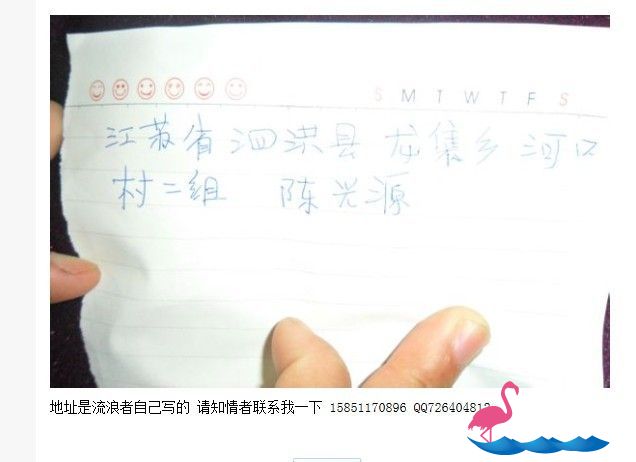 S M T W T F S
江苏省泗洪县 龙集乡 河口
村二组 陈兴源
地址是流浪者自己写的 请知情者联系我一下 15851170896 QQ726404812